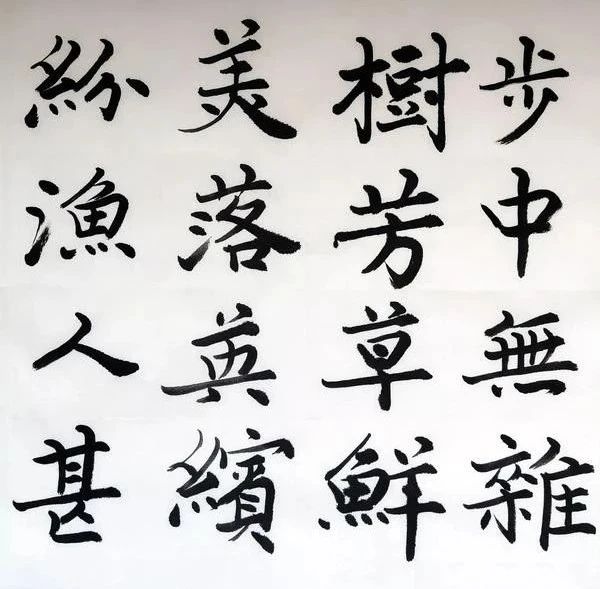 步中無雜
樹芳草鮮
美落英繽
紛漁人甚